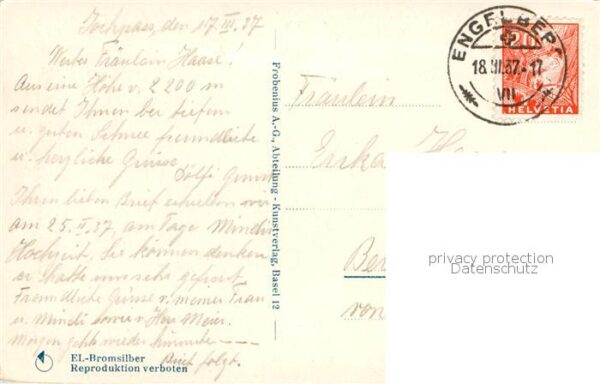 Jochpass, den 17. III. 37
Wertes Fräulein Haase!
Aus eine Höhe v. 2200 m
sendet Ihnen bei tiefem
u. guten Schnee freundliche
u. herzliche Grüsse
Ihren lieben Brief erhielten wir
am 25. II. 37, am Tage Mindis
Hochzeit. Sie können denken
er hatte uns sehr gefreut
Freundliche Grüsse v. meiner Frau
u. Mindi sowie v. Herr Meier.
Morgen geht wieder hinunter
Brief folgt.
EL-Bromsilber
Reproduktion verboten
Frobenius A.-G., Abteilung - Kunstverlag, Basel 12
ENGELBERG
18.III.37-17
VII
20
HELVETIA
Fräulein
Erika H
Be
von
privacy protection
Datenschutz